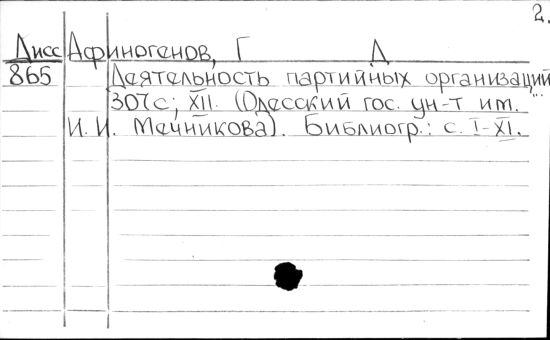 2.
Дисс Афиногенов, Г Д
865 Деятельность партийных организаций...
307с; XII. (Одесский гос. ун-т им.
И. И. Мечникова). Библиогр.: с. I-XI.